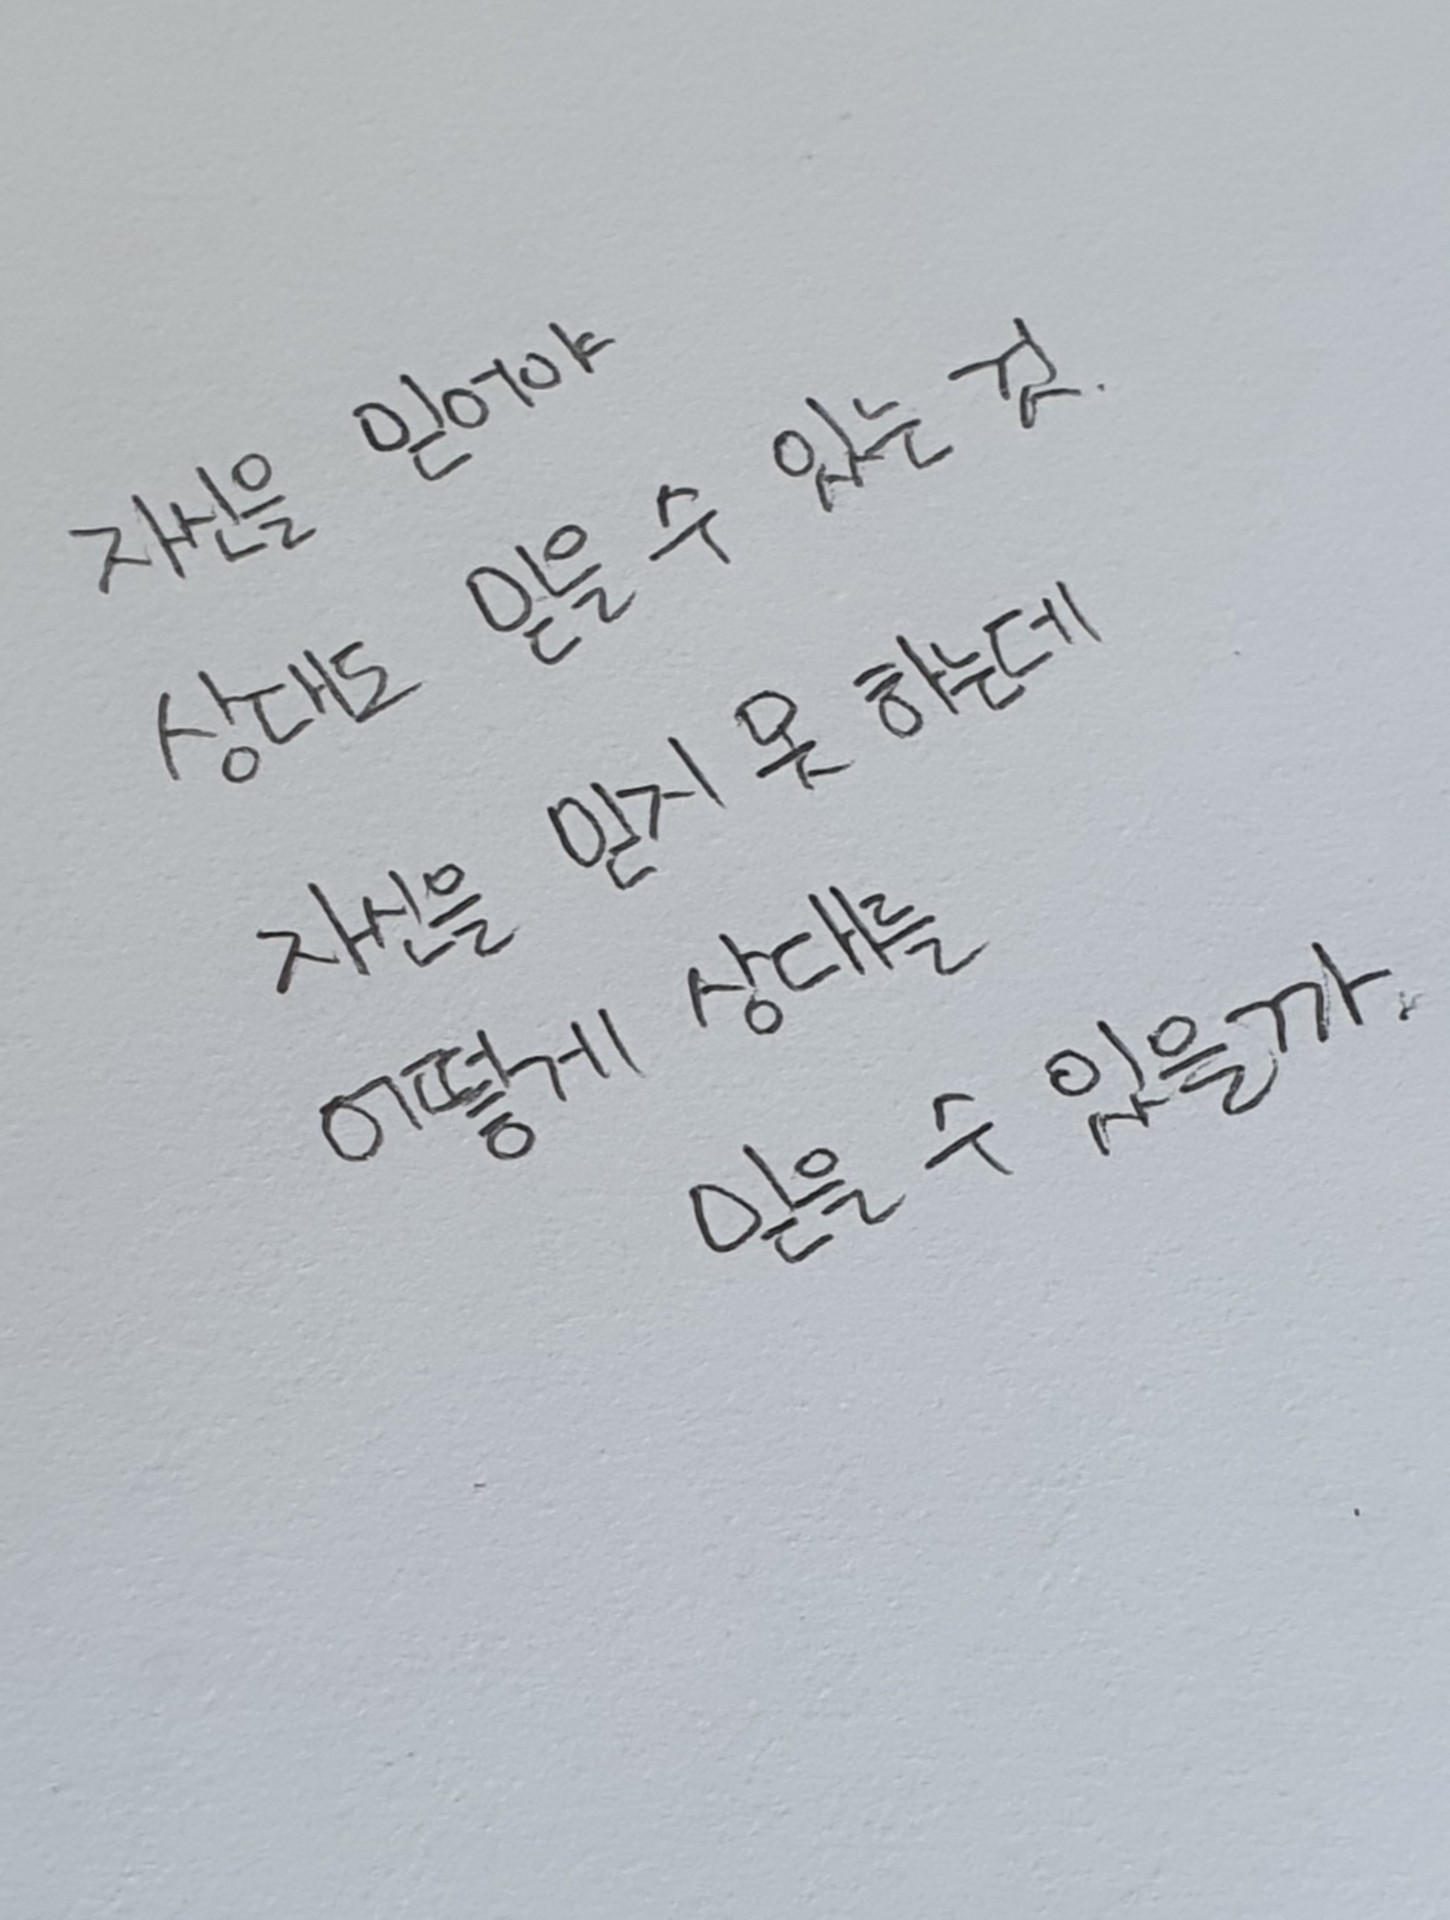 자신을 믿어야
상대도 믿을 수 있는 것.
자신을 믿지 못 하는데
어떻게 상대를
믿을 수 있을까.